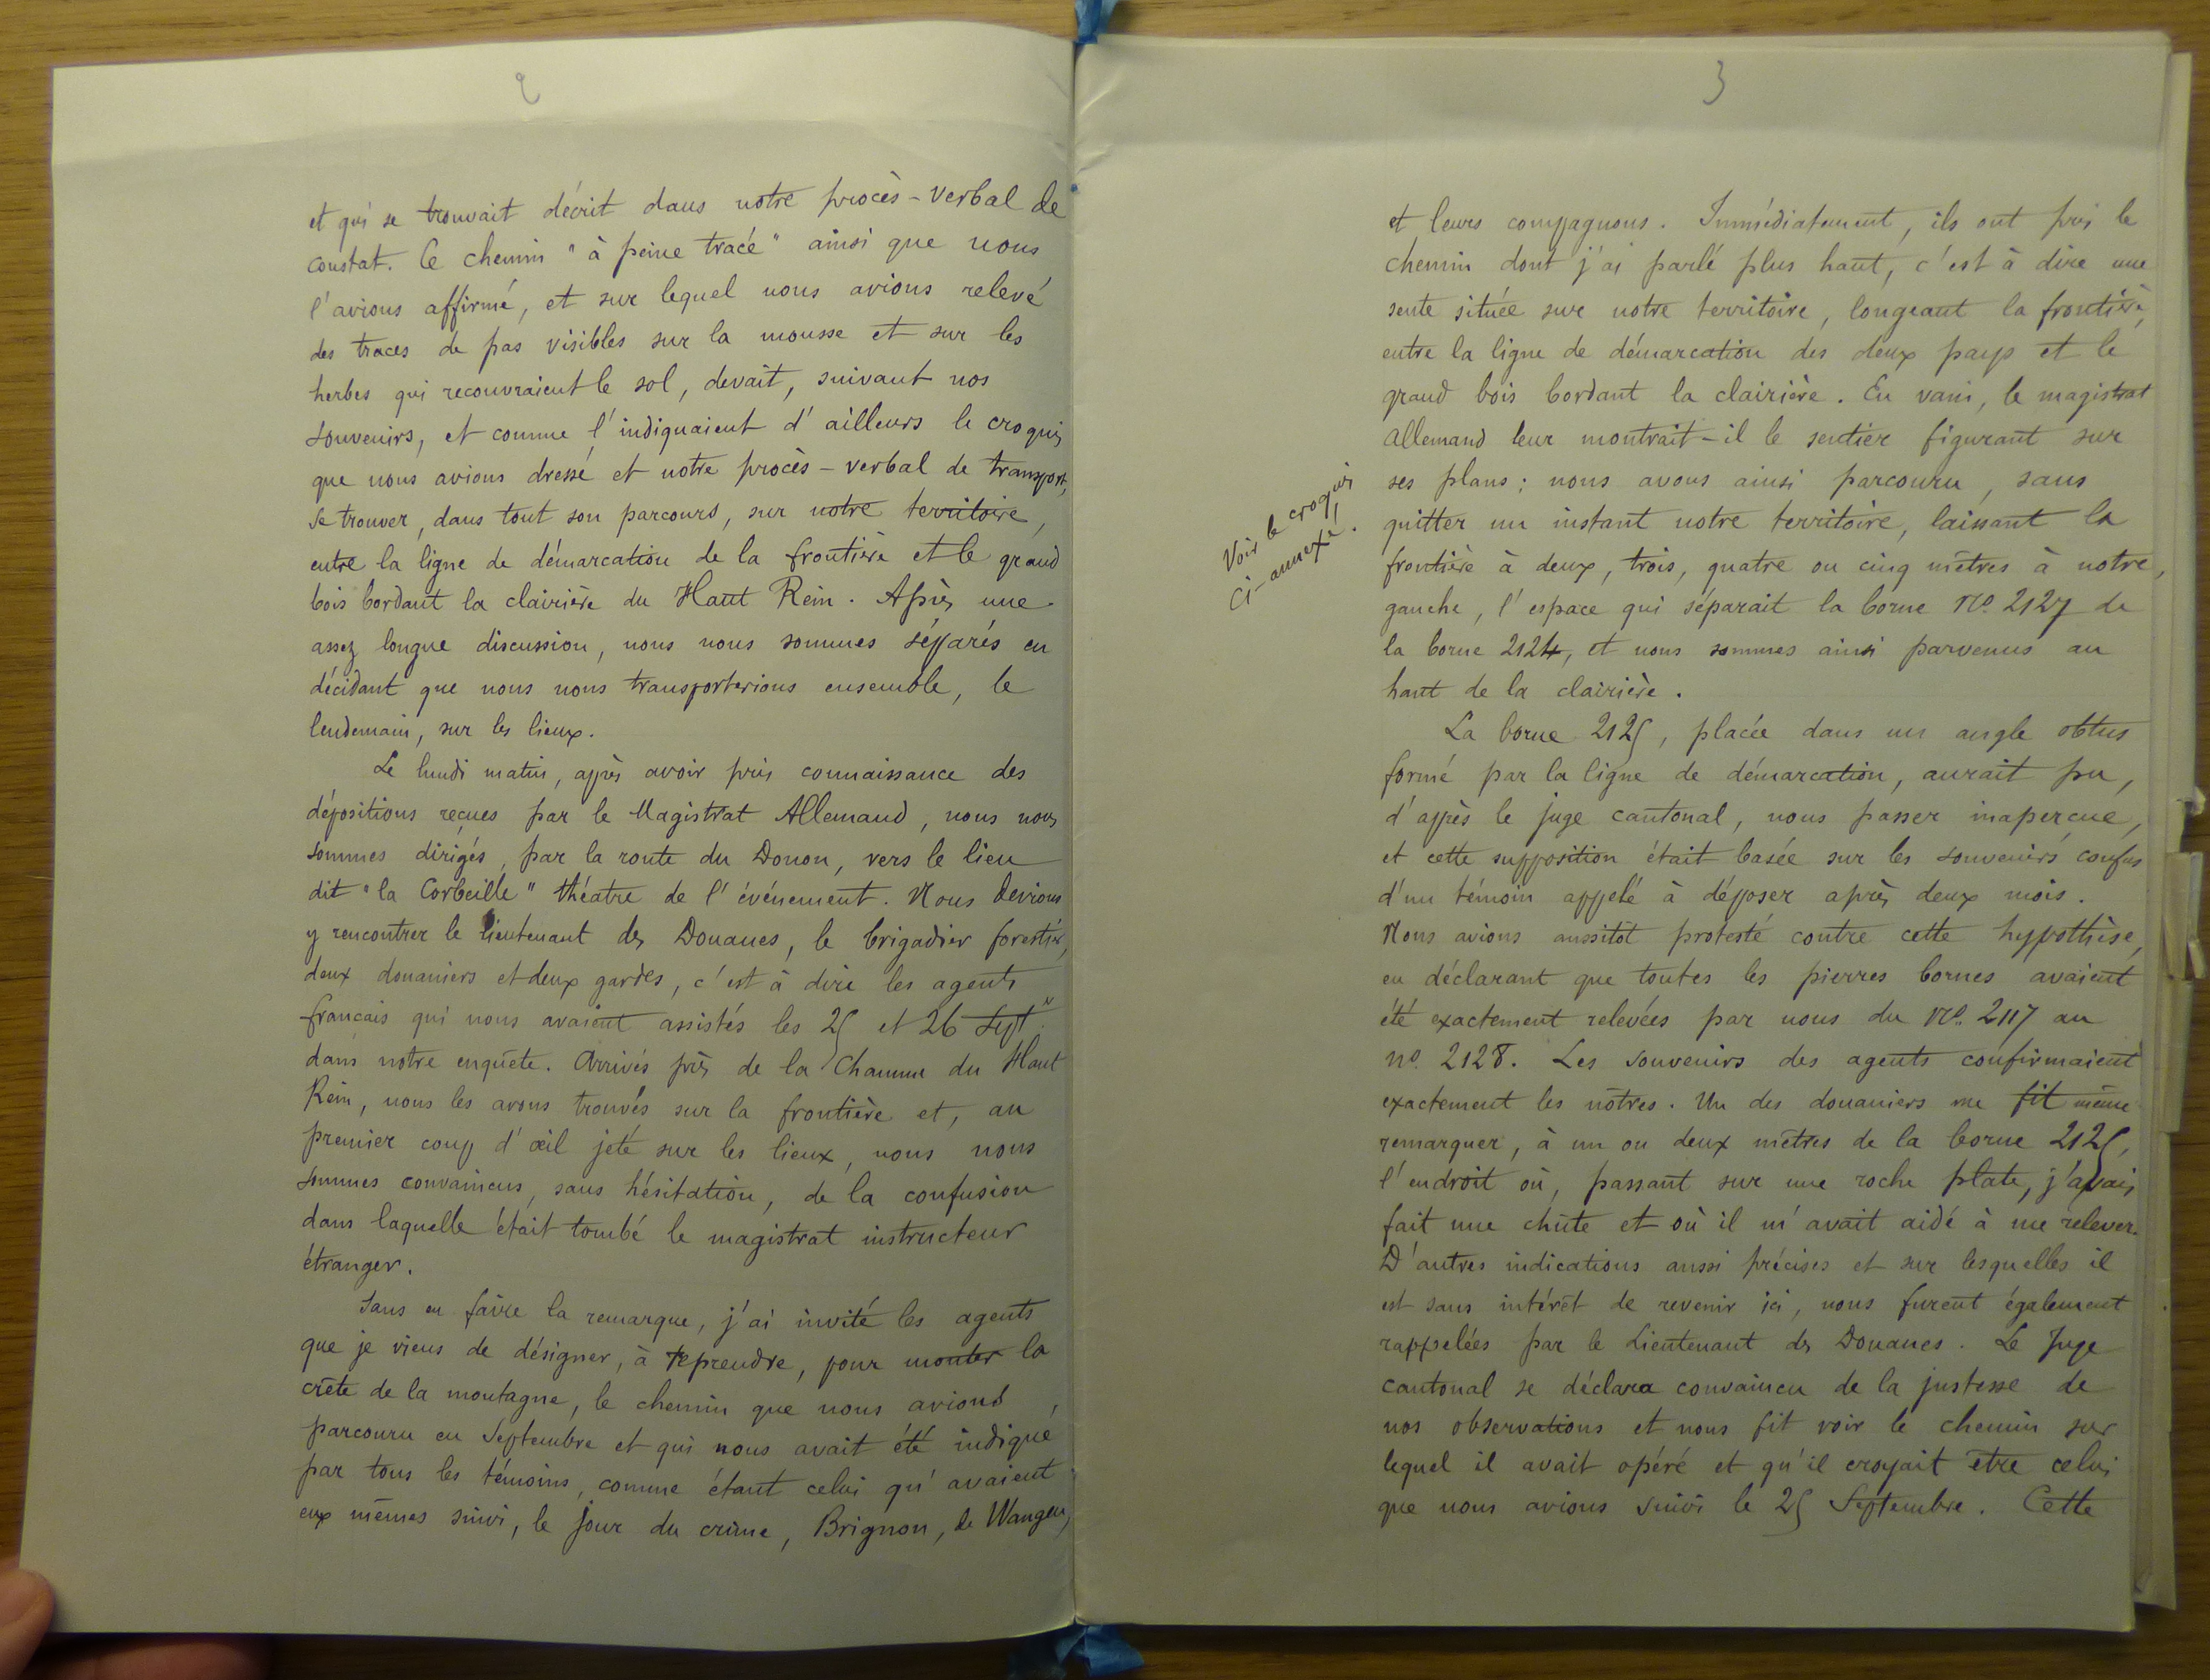 2
et qui se trouvait décrit dans notre procès-verbal de
constat. Ce chemin "à peine tracé" ainsi que nous
l'avions affirmé, et sur lequel nous avions relevé
des traces de pas visibles sur la mousse et sur les
herbes qui recouvraient le sol, devait, suivant nos
souvenirs, et comme l'indiquaient d'ailleurs le croquis
que nous avions dressé et notre procès-verbal de transport,
se trouver, dans tout son parcours, sur notre territoire,
entre la ligne de démarcation de la frontière et le grand
bois bordant la clairière du Haut Rein. Après une
assez longue discussion, nous nous sommes séparés en
décidant que nous nous transporterions ensemble, le
lendemain, sur les lieux.
Le lundi matin, après avoir pris connaissance des
dépositions reçues par le Magistrat Allemand, nous nous
sommes dirigés, par la route du Donon, vers le lieu
dit "la Corbeille" théatre de l'événement. Nous devions
y rencontrer le lieutenant des Douanes, le brigadier forestier,
deux douaniers et deux gardes, c'est à dire les agents
français qui nous avaient assistés les 25 et 26 Sept
dans notre enquête. Arrivés près de la Chaume du Haut
Rein, nous les avons trouvés sur la frontière et, au
premier coup d'œil jeté sur les lieux, nous nous
sommes convaincus, sans hésitation, de la confusion
dans laquelle était tombé le magistrat instructeur
étranger.
Sans en faire la remarque, j'ai invité les agents
que je viens de désigner, à reprendre, pour monter la
crête de la montagne, le chemin que nous avions
parcouru en Septembre et qui nous avait été indiqué
par tous les témoins, comme étant celui qu'avaient
eux mêmes suivi, le jour du crime, Brignon, de Wangen,
3
et leurs compagnons. Immédiatement, ils ont pris le
chemin dont j'ai parlé plus haut, c'est à dire une
sente située sur notre territoire, longeant la frontière,
entre la ligne de démarcation des deux pays et le
grand bois bordant la clairière. En vain, le magistrat
Allemand leur montrait-il le sentier figurant sur
ses plans; nous avons ainsi parcouru, sans
quitter un instant notre territoire, laissant la
frontière à deux, trois, quatre ou cinq mètres à notre
gauche, l'espace qui séparait la borne No. 2127 de
la borne 2124, et nous sommes ainsi parvenus au
haut de la clairière.
Voir le croquis
ci-annexé.
La borne 2125, placée dans un angle obtus
formé par la ligne de démarcation, aurait pu,
d'après le juge cantonal, nous passer inaperçue,
et cette supposition était basée sur les souvenirs confus
d'un témoin appelé à déposer après deux mois.
Nous avions aussitôt protesté contre cette hypothèse,
en déclarant que toutes les pierres bornes avaient
été exactement relevées par nous du No. 2117 au
no. 2128. Les souvenirs des agents confirmaient
exactement les nôtres. Un des douaniers me fit même
remarquer, à un ou deux mètres de la borne 2125,
l'endroit où, passant sur une roche plate, j'avais
fait une chûte et où il m'avait aidé à me relever.
D'autres indications aussi précises et sur lesquelles il
est sans intérêt de revenir ici, nous furent également
rappelées par le Lieutenant des Douanes. Le Juge
cantonal se déclara convaincu de la justesse de
nos observations et nous fit voir le chemin sur
lequel il avait opéré et qu'il croyait être celui
que nous avions suivi le 25 Septembre. Cette